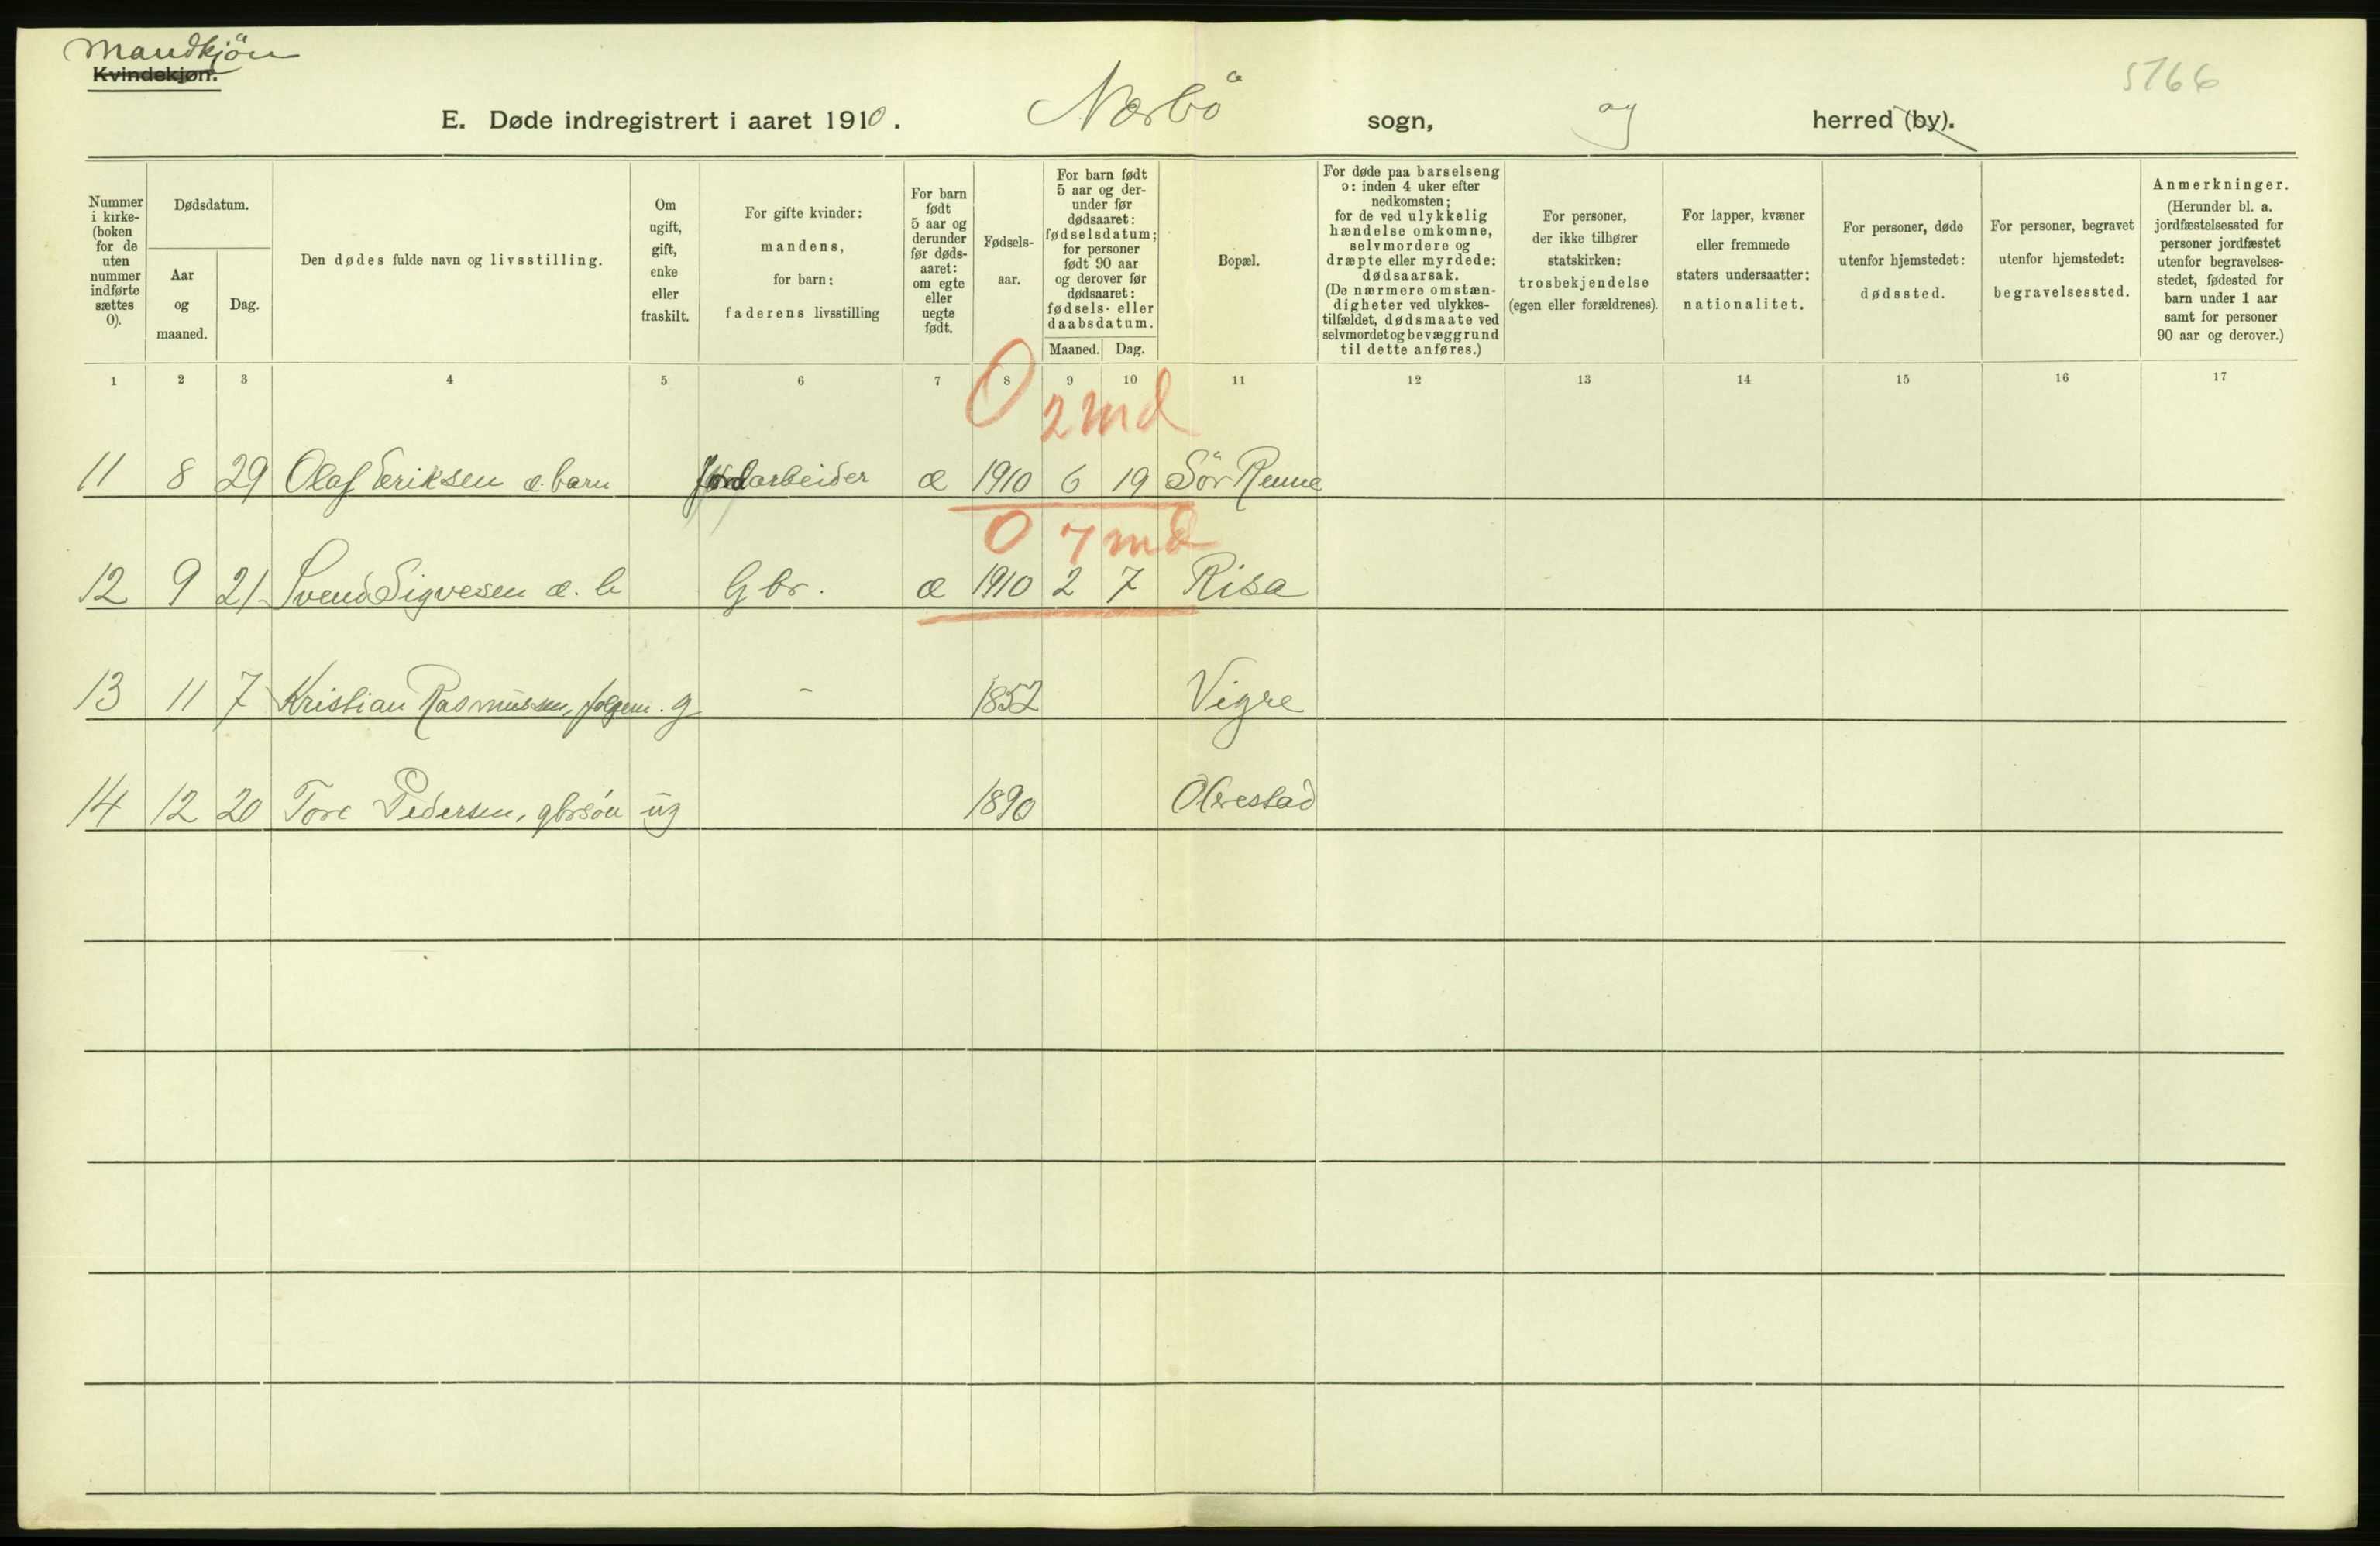 Mandkjøn
Kvindekjøn.
5166
E. Døde indregistrert i aaret 1910. Nærbö sogn, og herred (by).
Nummer i kirke- (boken for de uten nummer indførte sættes 0).
Dødsdatum.
Aar og maaned.
Dag.
Den dødes fulde navn og livsstilling.
Om ugift, gift, enke eller fraskilt.
For gifte kvinder: mandens, for barn: faderens livsstilling
For barn født 5 aar og derunder før døds- aaret: om egte eller uegte født.
Fødsels- aar.
For barn født 5 aar og der- under før dødsaaret: fødselsdatum; for personer født 90 aar og derover før dødsaaret: fødsels- eller daabsdatum.
Maaned. Dag.
Bopæl.
For døde paa barselseng ɔ: inden 4 uker efter nedkomsten; for de ved ulykkelig hændelse omkomne, selvmordere og dræpte eller myrdede: dødsaarsak. (De nærmere omstæn- digheter ved ulykkes- tilfældet, dødsmaate ved selvmordet og bevæggrund til dette anføres.)
For personer, der ikke tilhører statskirken: trosbekjendelse (egen eller forældrenes).
For lapper, kvæner eller fremmede staters undersaatter: nationalitet.
For personer, døde utenfor hjemstedet: dødssted.
For personer, begravet utenfor hjemstedet: begravelsessted.
Anmerkninger. (Herunder bl. a. jordfæstelsessted for personer jordfæstet utenfor begravelses- stedet, fødested for barn under 1 aar samt for personer 90 aar og derover.)
1 2 3 4 5 6 7 8 9 10 11 12 13 14 15 16 17
0 2 md
11 8 29 Olaf Eriksen æ. barn Jordarbeider æ 1910 6 19 Sör Renne
0 7 md
12 9 21 Svend Sigvesen æ. b Gbr. æ 1910 2 7 Risa
13 11 7 Kristian Rasmussen, folgem. g - 1852 Vigre
14 12 20 Tore Pedersen, gbrsön ug 1890 Obrestad